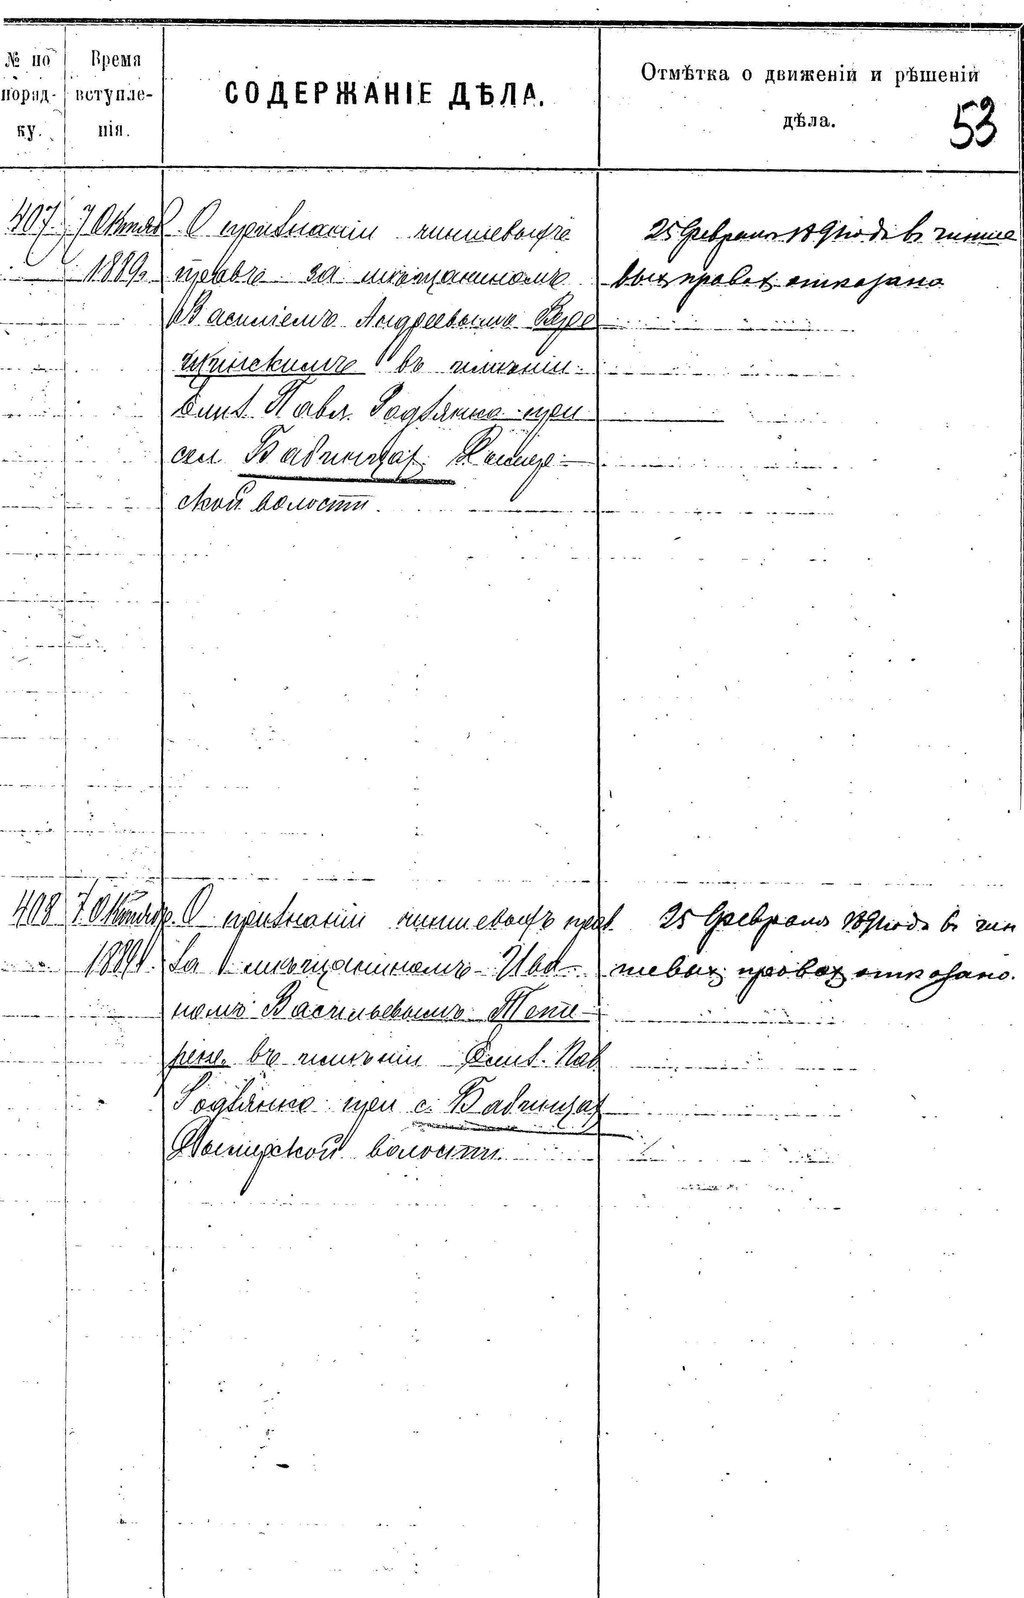 № по
поряд-
ку.
Время
вступле-
нія.
СОДЕРЖАНІЕ ДѢЛА.
Отмѣтка о движеніи и рѣшеніи
дѣла.
53
407
7 Октяб
1889г.
О признаніи чиншевыхъ
правъ за мѣщаниномъ
Василіемъ Андреевымъ
жинскимъ въ имѣніи
Елиз. Павл. Родзянко при
сел Бабинцах Дымер-
ской волости.
25 Февраля года в чинше
вых правах отказано
408
7. Октябр.
1889г.
О признаніи чиншевыхъ прав
за мѣщаниномъ Ива-
номъ Васильевымъ Тете-
рею въ имѣніи Елиз. Пав
Родзянко при с. Бабинцах
Дымерской волости.
25 Февраля года в чин
шевых правах отказано.